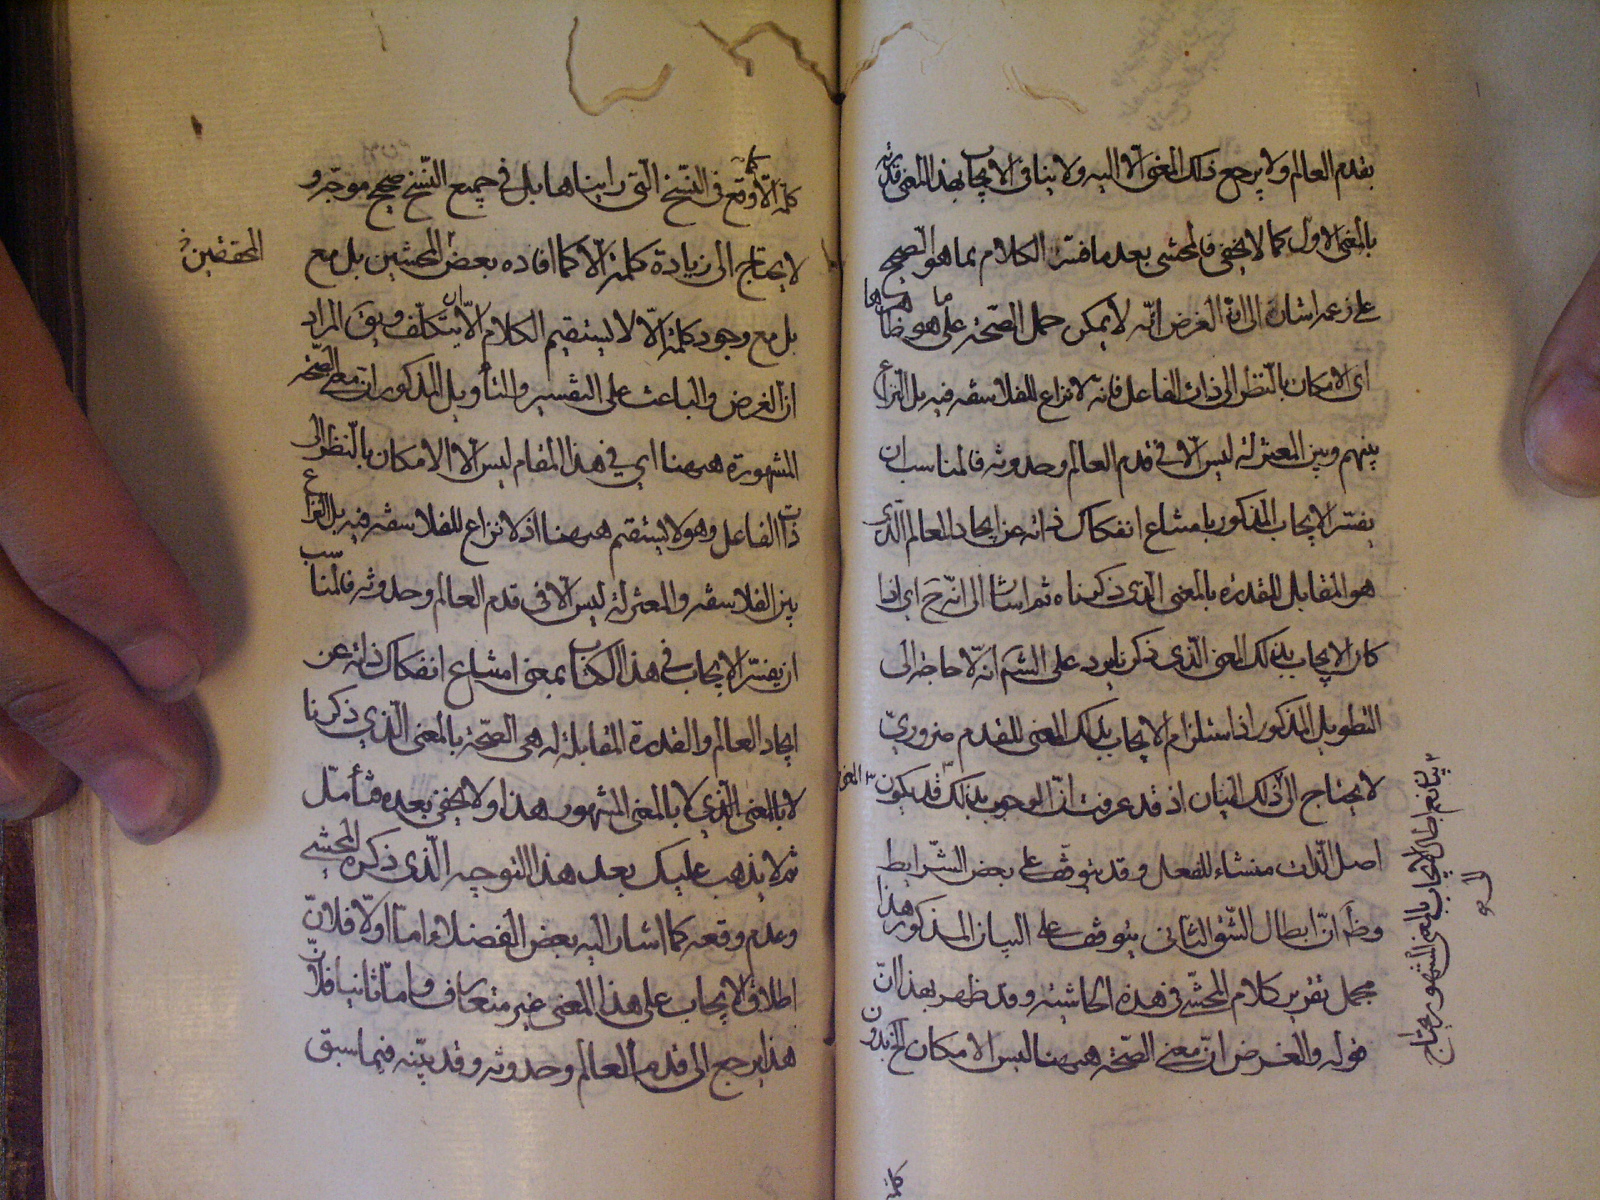 بقدم العالم ولا يرجع ذلك المعنى الا اليه ولا ينافى الايجاب بهذا المعنى قدرته
بالمعنى الاول كما لا يخفى فالمحشى بعد ما فسّر الكلام بما هو الصحيح
على زعمه اشار الى انّ الغرض انّه لا يمكن حمل الصّحة على ما هو ظاهرها
اى الامكان بالنّظر الى ذات الفاعل فانّه لا نزاع للفلاسفه فيه بل النزاع
بينهم وبين المعتزلة ليس الّا فى قدم العالم وحدوثه فالمناسب ان
يفسّر الايجاب المذكور بامتناع انفكاك ذاته عن ايجاد العالم الّذى
هو المقابل للقدرة بالمعنى الّذى ذكرناه ثم اشار الى انّه ح اى اذا
كان الايجاب بذلك المعنى الّذى ذكرنا يرد على الشم انّه لا حاجة الى
التطويل المذكور اذ استلزام الايجاب بذلك المعنى للقدم ضرورىّ
لا يحتاج الى ذلك البيان اذ قد عرفت انّ الموجب بذلك المعنى قد يكون
اصل الذات منشاء للفعل وقد يتوقّف على بعض الشّرايط
وظ انّ ابطال الشّق الثانى يتوقّف على البيان المذكور هذا
مجمل تقرير كلام المحشّى فى هذه الحاشية وقد ظهر بهذا انّ
قوله والغرض انّ معنى الصّحة هيهنا ليس الامكان الخ بدون
بيانه ابطال الايجاب بالمعنى المشهور يحتاج
كلمة
كلمة الّا كما وقع فى النّسخ الّتى رايناها بل فى جميع النّسخ صحيح موجّه و
لا يحتاج الى زيادة كلمة الّا كما افاده بعض المحشين بل مع
المحققين
بل مع وجود كلمة الّا لا يستقيم الكلام الّا بتكلّف ويق المراد
ان الغرض والباعث على التفسير والتأويل المذكور ان معنى الصّحة
المشهورة هيهنا اي في هذا المقام ليس الّا الامكان بالنظر الى
ذات الفاعل وهو لا يستقيم هيهنا اذ لا نزاع للفلاسفه فيه بل النزاع
بين الفلاسفه والمعتزلة ليس الّا فى قدم العالم وحدوثه فالمناسب
ان يفسّر الايجاب فى هذا الكتاب بمعنى امتناع انفكاك ذاته عن
ايجاد العالم والقدرة المقابلة له هى الصّحة بالمعنى الّذي ذكرنا
لا بالمعنى الّذي لا بالمعنى المشهور هذا ولا يخفى بعده فتأمّل
ثم لا يذهب عليك بعد هذا التوجيه الّذى ذكره المحشى
وعدم وقعه كما اشار اليه بعض الفضلاء امّا اوّلا فلانّ
اطلاق الايجاب على هذا المعنى غير متعارف وامّا ثانيا فلانّ
هذا يرجع الى قدم العالم وحدوثه وقد بيّنه فيما سبق